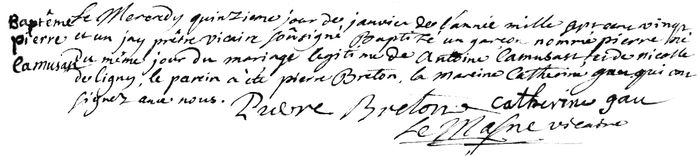 Baptême Le Mercredy quinzieme jour de janvier de l'année mille sept cent vingt
pierre et un jay prêtre vicaire sousigné Baptisé un garçon nommé pierre né
Camusat du même jour du mariage legitime de Antoine Camusat et de nicolle
de ligny, le parein a été pierre Breton, la mareine Catherine gau qui ont
signez avec nous.
Pierre Breton catherine gau
Le Masne vicaire